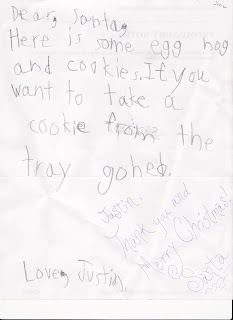 Dear, Santa,
Here is some egg nog
and cookies. If you
want to take a
cookie from the
tray gohed.
Justin,
Thank you and
Merry Christmas!
Santa
Love, Justin.